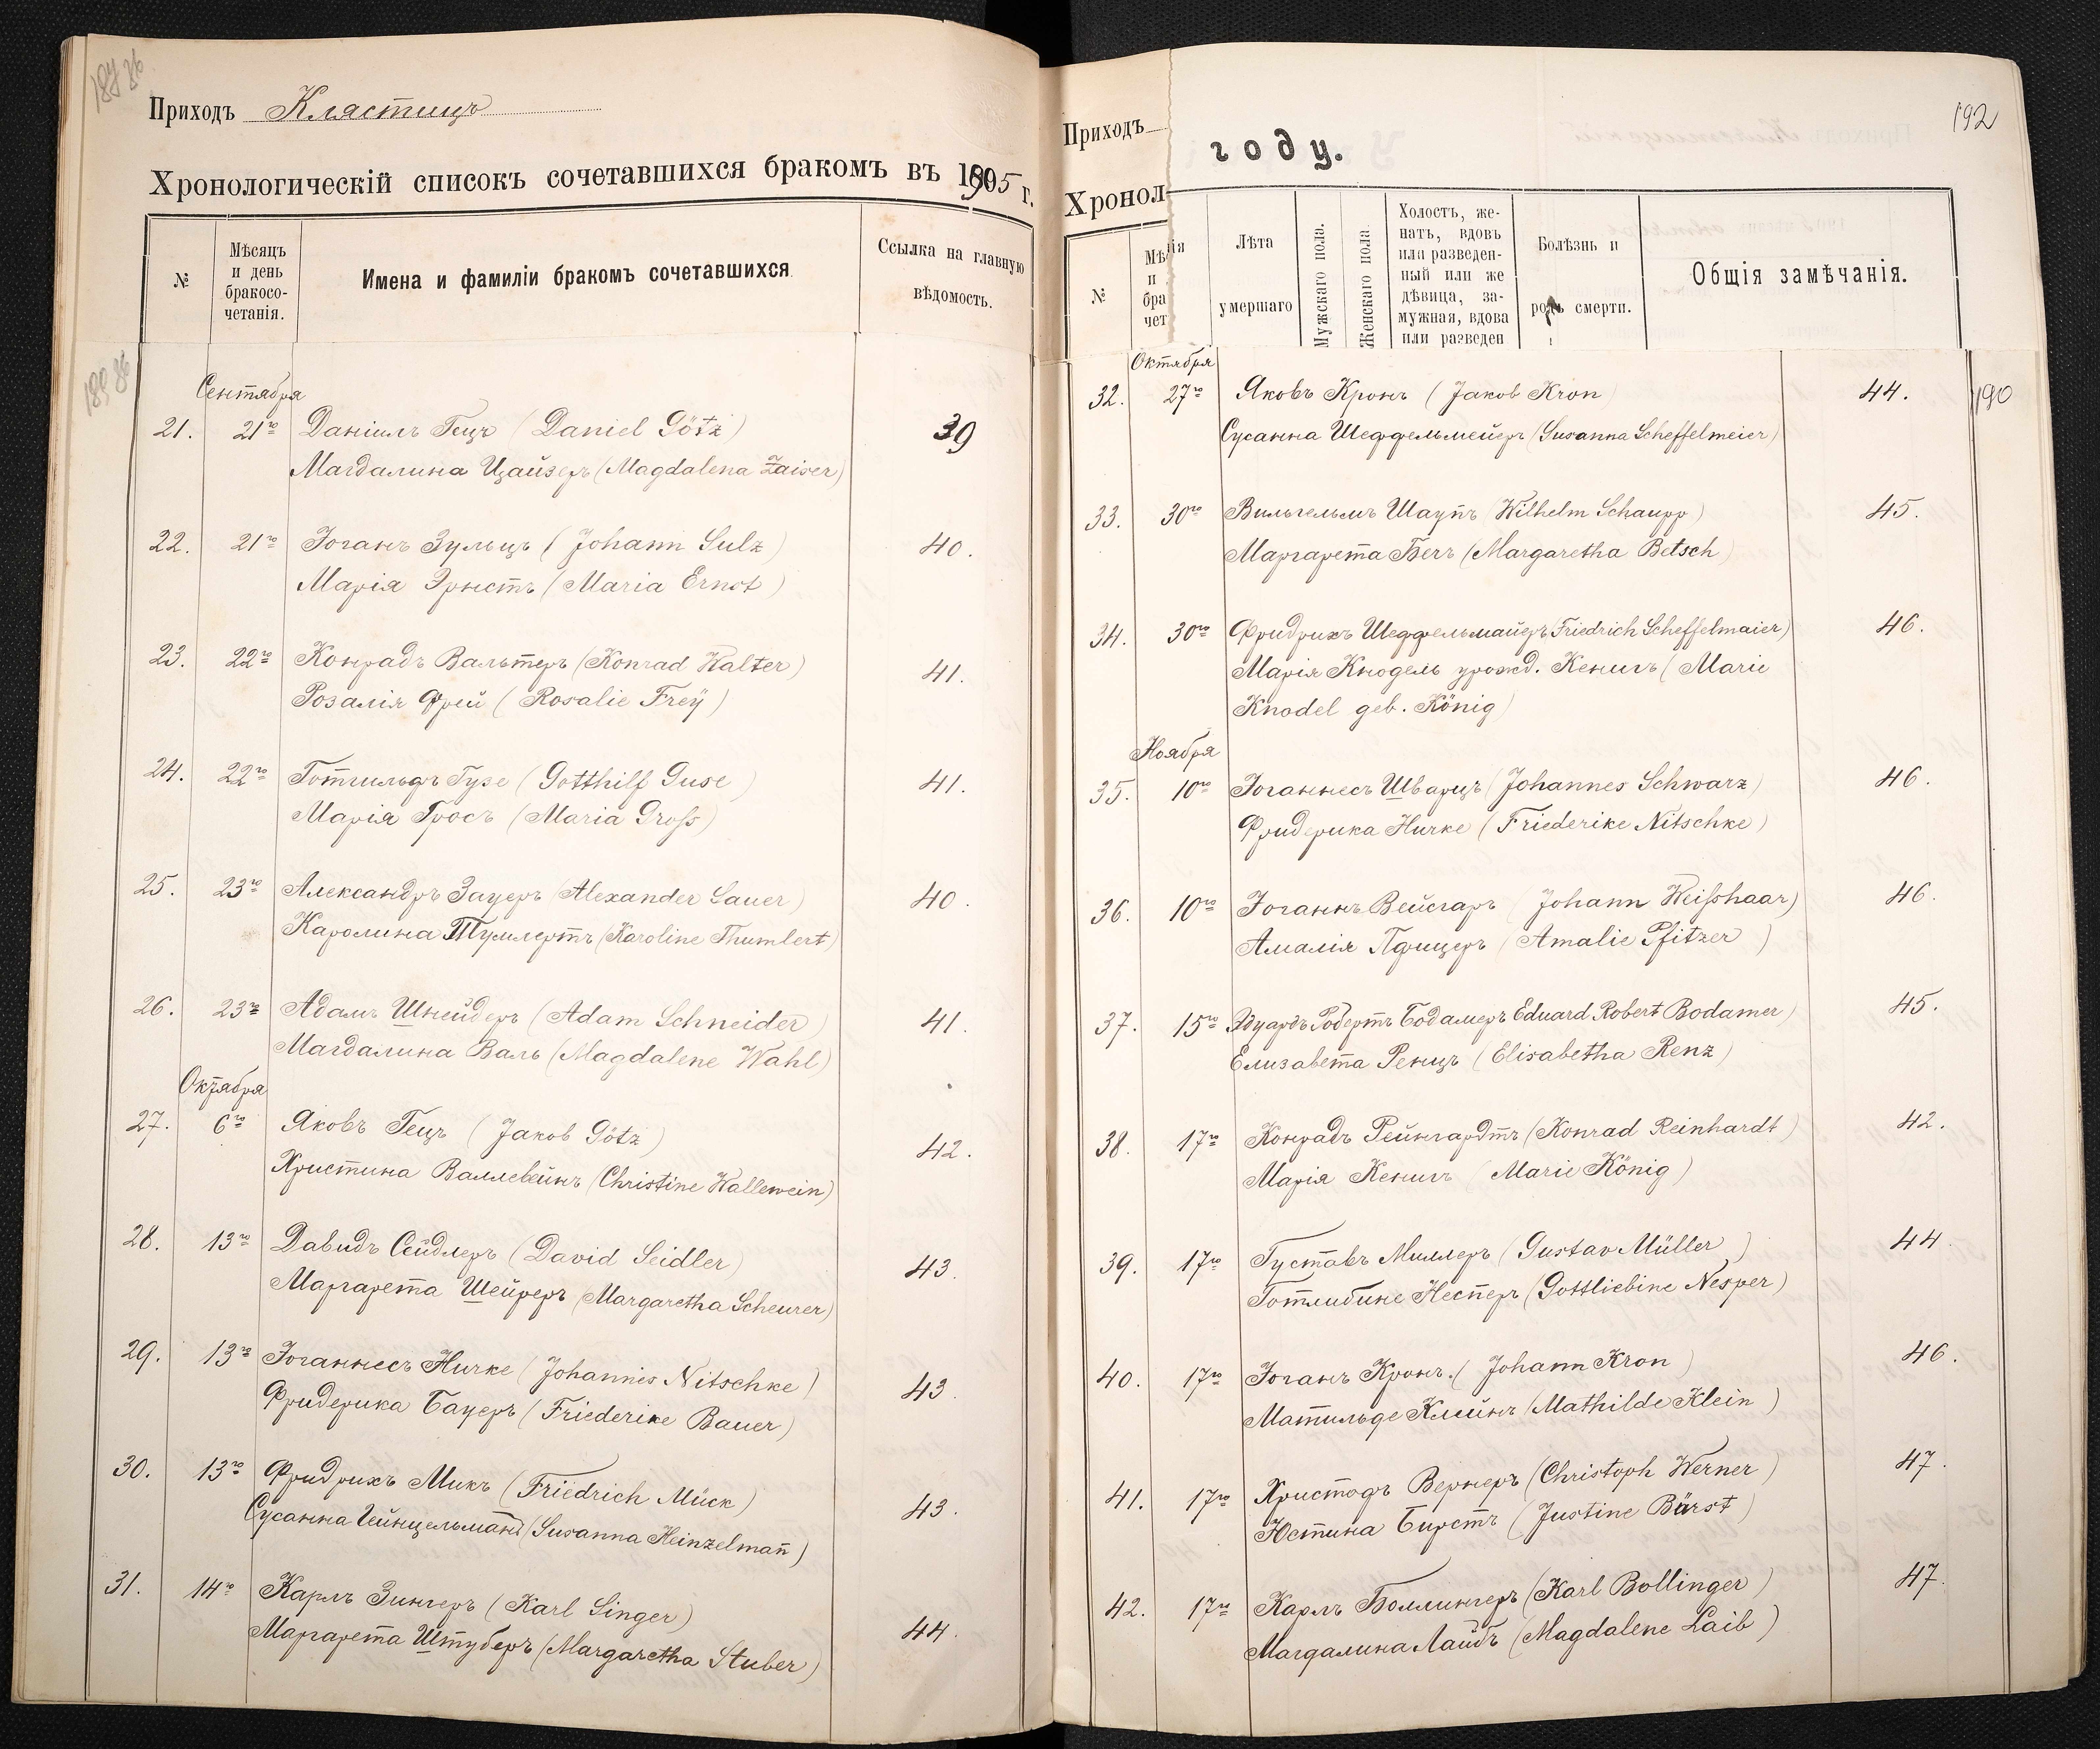 Приходъ Кластицъ
Хронологическій списокъ сочетавшихся бракомъ въ 1905 г.
№
Мѣсяцъ
и день
бракосо-
четанія.
Имена и фамиліи бракомъ сочетавшихся
Ссылка на главную
вѣдомость.
Сентября
21. 21го Даніилъ Гецъ (Daniel Götz) 39
Магдалина Цайзеръ (Magdalena Zaiser)
22. 21го Іоганъ Зульцъ (Johann Sulz) 40.
Марія Эрнстъ (Maria Ernst)
23. 22го Конрадъ Вальтеръ (Konrad Walter) 41.
Розалія Фрей (Rosalie Freÿ)
24. 22го Готгильфъ Гузе (Gotthilf Guse) 41.
Марія Гросъ (Maria Groß)
25. 23го Александръ Зауеръ (Alexander Sauer) 40.
Каролина Тумлертъ (Karoline Thumlert)
26. 23го Адамъ Шнейдеръ (Adam Schneider) 41.
Магдалина Валь (Magdalene Wahl)
Октября
27. 6го Яковъ Гецъ (Jakob Götz) 42.
Христина Валлевейнъ (Christine Wallewein)
28. 13го Давидъ Сейдлеръ (David Seidler) 43.
Маргарета Шейреръ (Margaretha Scheurer)
29. 13го Іоганнесъ Ничке (Johannes Nitschke) 43.
Фридерика Бауеръ (Friederike Bauer)
30. 13го Фридрихъ Микъ (Friedrich Mück) 43.
Сусанна Гейнцельманъ (Susanna Heinzelman̄)
31. 14го Карлъ Зингеръ (Karl Singer) 44.
Маргарета Штуберъ (Margaretha Stuber)
Приходъ
году.
192
Хронол
№
Мѣ
и
бра
чет
ія
Лѣта
умершаго
Мужскаго пола.
Женскаго пола.
Холостъ, же-
натъ, вдовъ
или разведен-
ный или же
дѣвица, за-
мужная, вдова
или разведен
Болѣзнь и
родъ смерти.
Общія замѣчанія.
Октября
32. 27го Яковъ Кронъ (Jakob Kron) 44. 190
Сусанна Шеффельмейеръ (Susanna Scheffelmeier)
33. 30го Вильгельмъ Шаупъ (Wilhelm Schaupp) 45.
Маргарета Бечъ (Margaretha Betsch)
34. 30го Фридрихъ Шеффельмайеръ (Friedrich Scheffelmaier) 46.
Марія Кнодель урожд. Кенигъ (Marie
Knodel geb. König)
Ноября
35. 10го Іоганнесъ Шварцъ (Johannes Schwarz) 46.
Фридерика Ничке (Friederike Nitschke)
36. 10го Іоганнъ Вейсгаръ (Johann Weißhaar) 46.
Амалія Пфицеръ (Amalie Pfitzer)
37. 15го Эдуардъ Робертъ Бодамеръ (Eduard Robert Bodamer) 45.
Елизавета Ренцъ (Elisabetha Renz)
38. 17го Конрадъ Рейнгардтъ (Konrad Reinhardt) 42.
Марія Кенигъ (Marie König)
39. 17го Густавъ Миллеръ (Gustav Müller) 44
Готлибине Несперъ (Gottliebine Nesper)
40. 17го Іоганъ Кронъ. (Johann Kron) 46.
Матильде Клейнъ (Mathilde Klein)
41. 17го Христофъ Вернеръ (Christoph Werner) 47.
Юстина Бирстъ (Justine Bürst)
42. 17го Карлъ Боллингеръ (Karl Bollinger) 47.
Магдалина Лайбъ (Magdalene Laib)